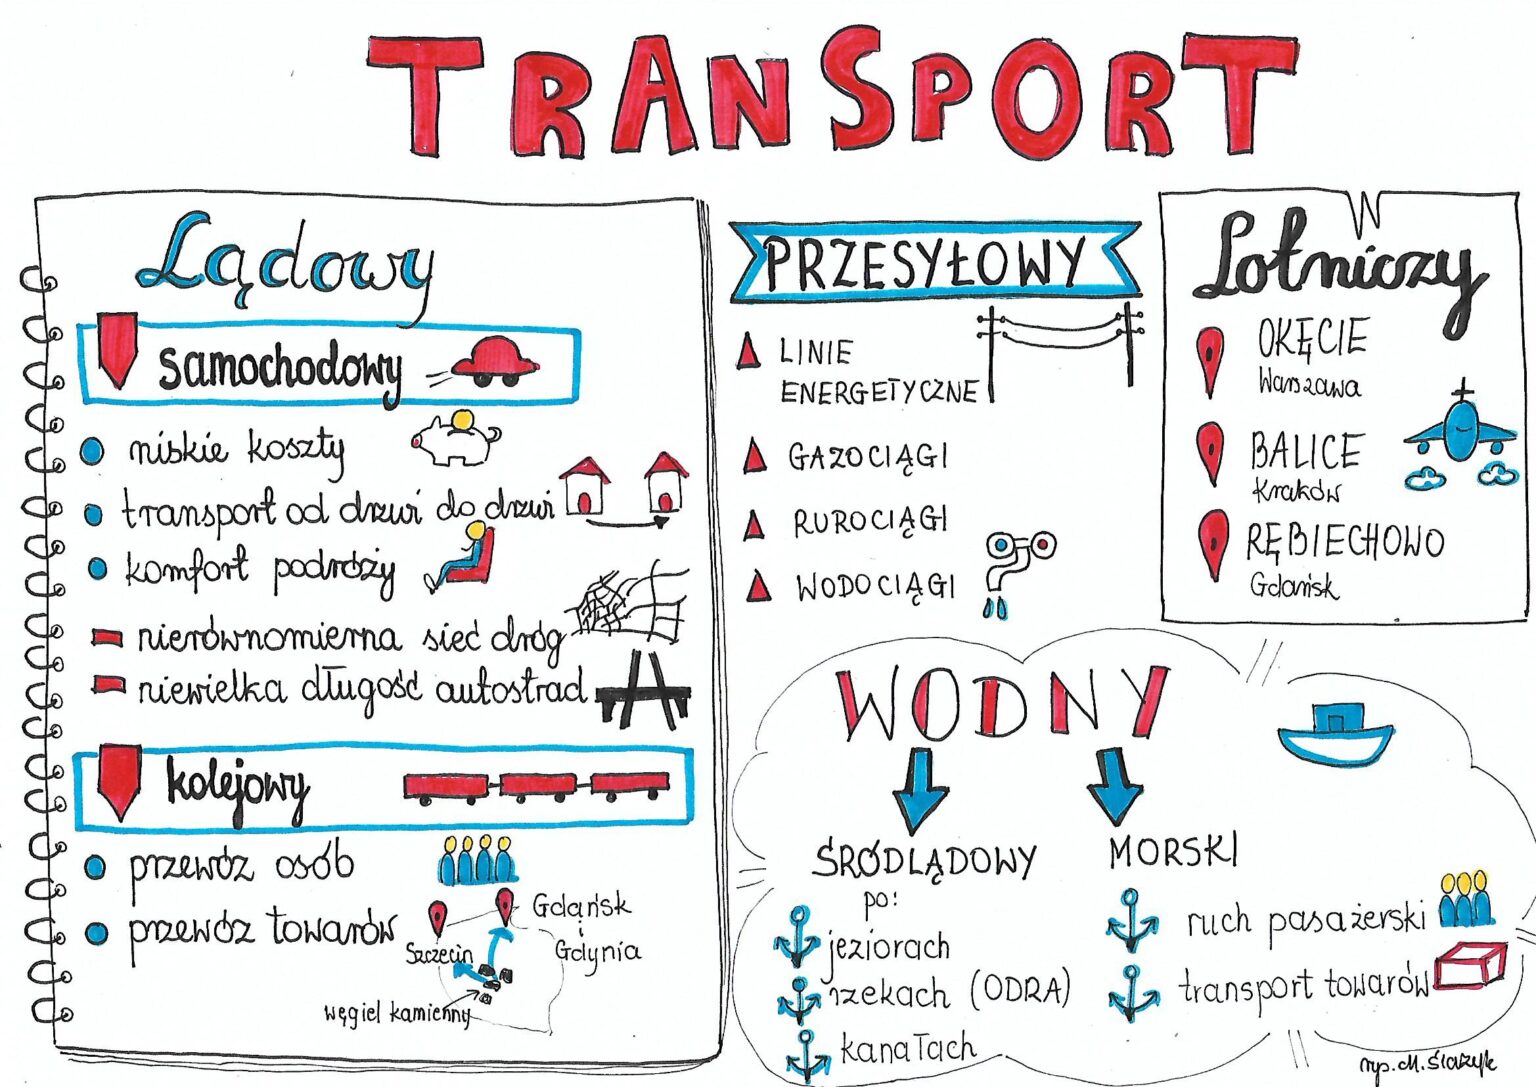 TRANSPORT
Lądowy
samochodowy
niskie koszty
transport od drzwi do drzwi
komfort podróży
nierównomierna sieć dróg
niewielka długość autostrad
kolejowy
przewóz osób
przewóz towarów
Gdańsk
i
Gdynia
Szczecin
węgiel kamienny
PRZESYŁOWY
LINIE
ENERGETYCZNE
GAZOCIĄGI
RUROCIĄGI
WODOCIĄGI
Lotniczy
OKĘCIE
Warszawa
BALICE
Kraków
RĘBIECHOWO
Gdańsk
WODNY
ŚRÓDLĄDOWY
po:
jeziorach
rzekach (ODRA)
kanałach
MORSKI
ruch pasażerski
transport towarów
rys. M.